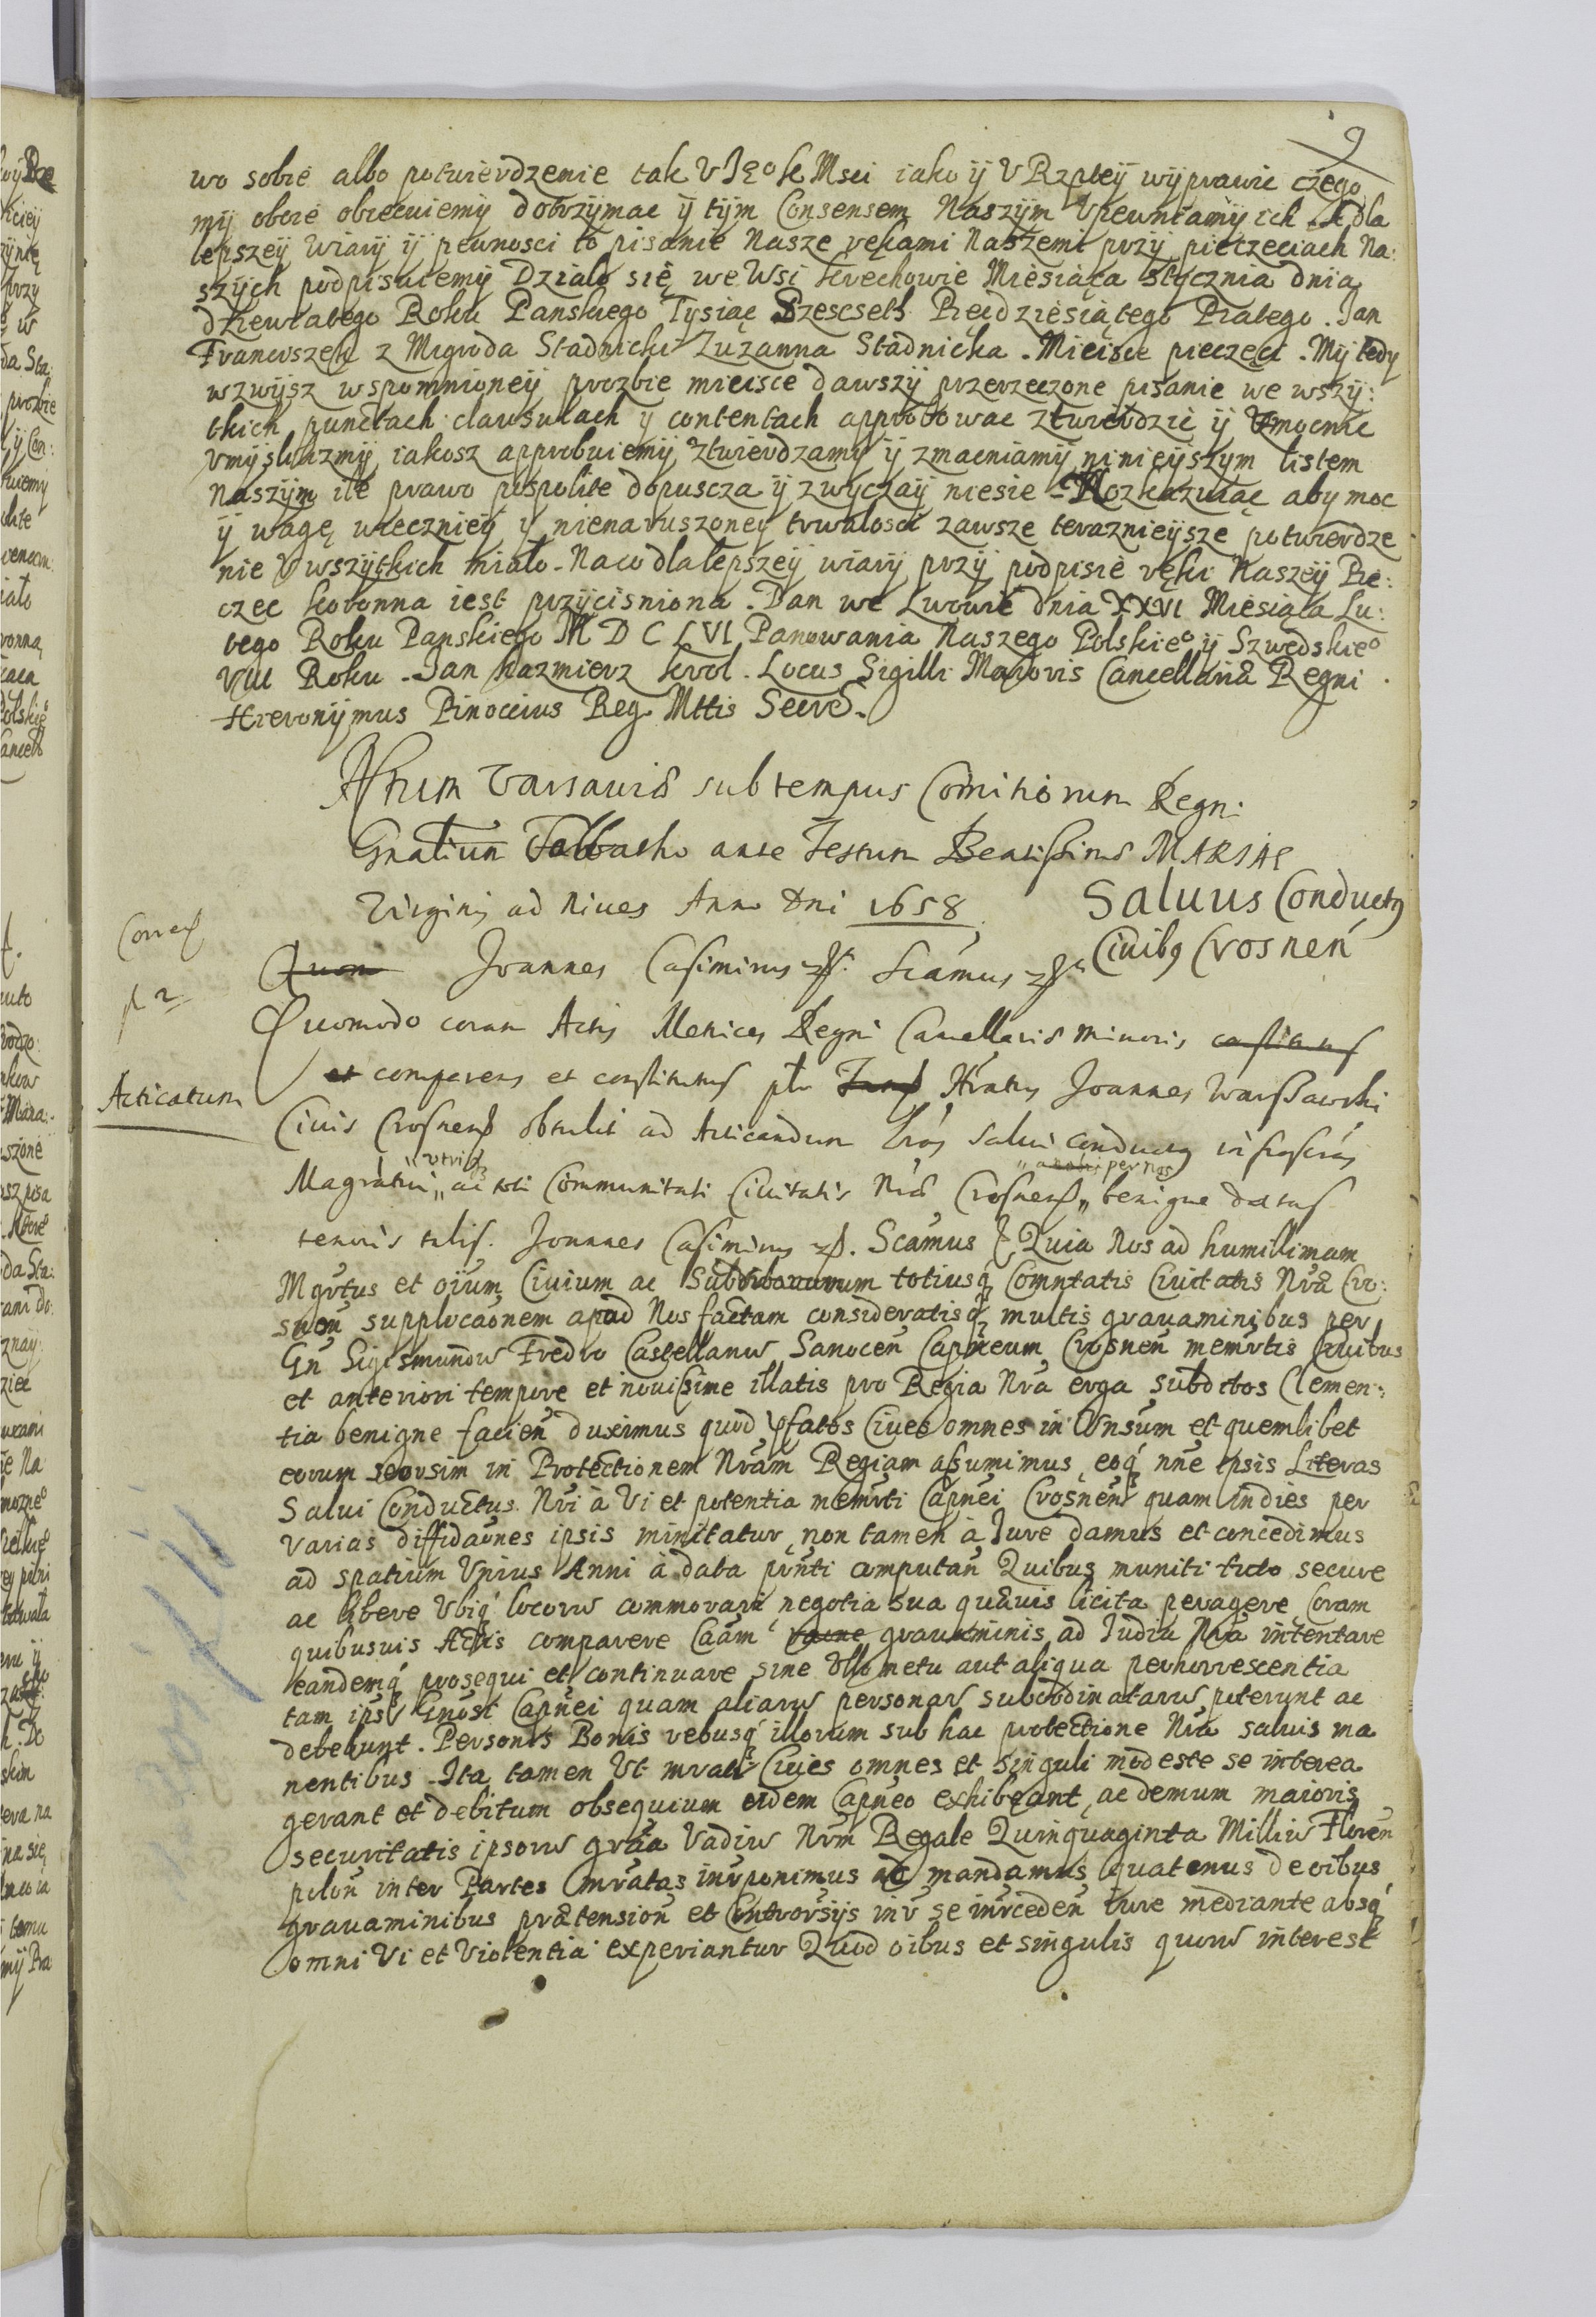 9
wo sobie albo potwierdzenie tak V Je° K Msci iako ÿ V Rzpteÿ wÿprawić czego
mÿ oboie obiecuiemÿ dotrzÿmac ÿ tÿm Consensem Naszÿm Vpewniamÿ ich. A dla
lepszeÿ wiarÿ ÿ pewnosci to pisanie Nasze rękami Naszemi przÿ pieczęciach Na:
szÿch podpisuiemÿ Działo się we Wsi Krechowie Miesiąca Stÿcznia dnia
dziewiatego Roku Panskiego Tÿsiąc Szescseth Pięcdziesiątego Piatego. Jan
Franciszek z Migroda Stadnicki Zuzanna Stadnicka. Mieisce pieczęci. Mÿ tedy
wzwÿsz wspomnioneÿ prozbie mieisce dawszÿ przerzeczone pisanie we wszÿ:
tkich punctach clausulach ÿ contentach approbowac ztwierdzić ÿ Vmocnic
vmÿslilizmÿ iakosz approbuiemÿ ztwierdzamÿ ÿ zmacniamÿ ninieÿszym listem
Naszÿm ile prawo pospolite dopuscza ÿ zwÿczaÿ niesie. Rozkazuiąc aby moc
ÿ wagę wieczneÿ ÿ nienaruszoneÿ trwałosci zawsze teraznieÿsze potwierdze
nie V wszÿtkich miało. Na co dla lepszeÿ wiarÿ przÿ podpisie ręki Naszeÿ Pie:
czec koronna iest przÿcisniona. Dan we Lwowie dnia XXVI Miesiąca Lu:
tego Roku Panskiego M D C LVI Panowania Naszego Polskie° ÿ Szwedskie°
VIII Roku. Jan Kazmierz Krol. Locus Sigilli Maioris Cancellariæ Regni.
Hieronÿmus Pinoccius Reg. Mttis Secret.
Actum Varsaviæ sub tempus Comitiorum Regni
Gnalium Sabbatho ante Festum Beatissimæ MARIAE
Virginis ad Niues Anno Dni 1658
Saluus Conductus
Ciuibus Crosnen
Correx
Quon Joannes Casimirus Scamus
p 2
Quomodo coram Actis Metrices Regni Cancellariæ Minoris constitutus
et comparens et constitutus ptr Hnratus Joannes Warssawski
Acticatum
Ciuis Crosnens obtulit ad Acticandum Lras Salui Conductus infrascras
Magratui utriq ac toti Communitati Ciuitatis Nræ Crosnens per nos benigne datas
tenoris talis. Joannes Casimirus. Scamus Quia Nos ad humillimam
Mgrtus et oium Ciuium ac Subditorum totiusq Comntatis Ciuitatis Nræ Cro:
snen supplicaonem apud Nos factam consideratisq multis grauaminibus per
Gn Sigismundum Fredro Castellanum Sanocen Capneum Crosnen memrtis Ciuibus
et anteriori tempore et nouissime illatis pro Regia Nra erga subditos Clemen:
tia benigne facien duximus quod pfatos Ciues omnes in Vnsum et quemlibet
eorum seorsim in Protectionem Nram Regiam assumimus, eoq nne ipsis Literas
Salui Conductus Nri à Vi et potentia memrti Capnei Crosnen quam indies per
varias diffidaones ipsis minitatur, non tamen à Jure damus et concedimus
ad spatium Vnius Anni à data pnti computan Quibus muniti tuto secure
ac libere Vbiq locorum commorari negotia sua quæuis licita peragere Coram
quibusuis Actis comparere Caam grauaminis ad Judia Nra intentare
eandemq prosequi et continuare sine Vllo metu aut aliqua perhorrescentia
tam ipsi Gnosi Capnei quam aliarum personarum subordinatarum poterunt ac
debebunt. Personis Bonis rebusq illorum sub hac protectione Nra saluis ma
nentibus. Ita tamen Vt mrati Ciues omnes et singuli modeste se interea
gerant et debitum obsequium eidem Capneo exhibeant, ac demum maioris
securitatis ipsorum graa Vadium Nrm Regale Quinquaginta Millium Floren
polon inter Partes mratas inrponimus ac mandamus quatenus de oibus
grauaminibus prætension et Controrsÿs inr se inrceden iure mediante absq
omni Vi et Violentia experiantur Quod oibus et singulis quorum interest